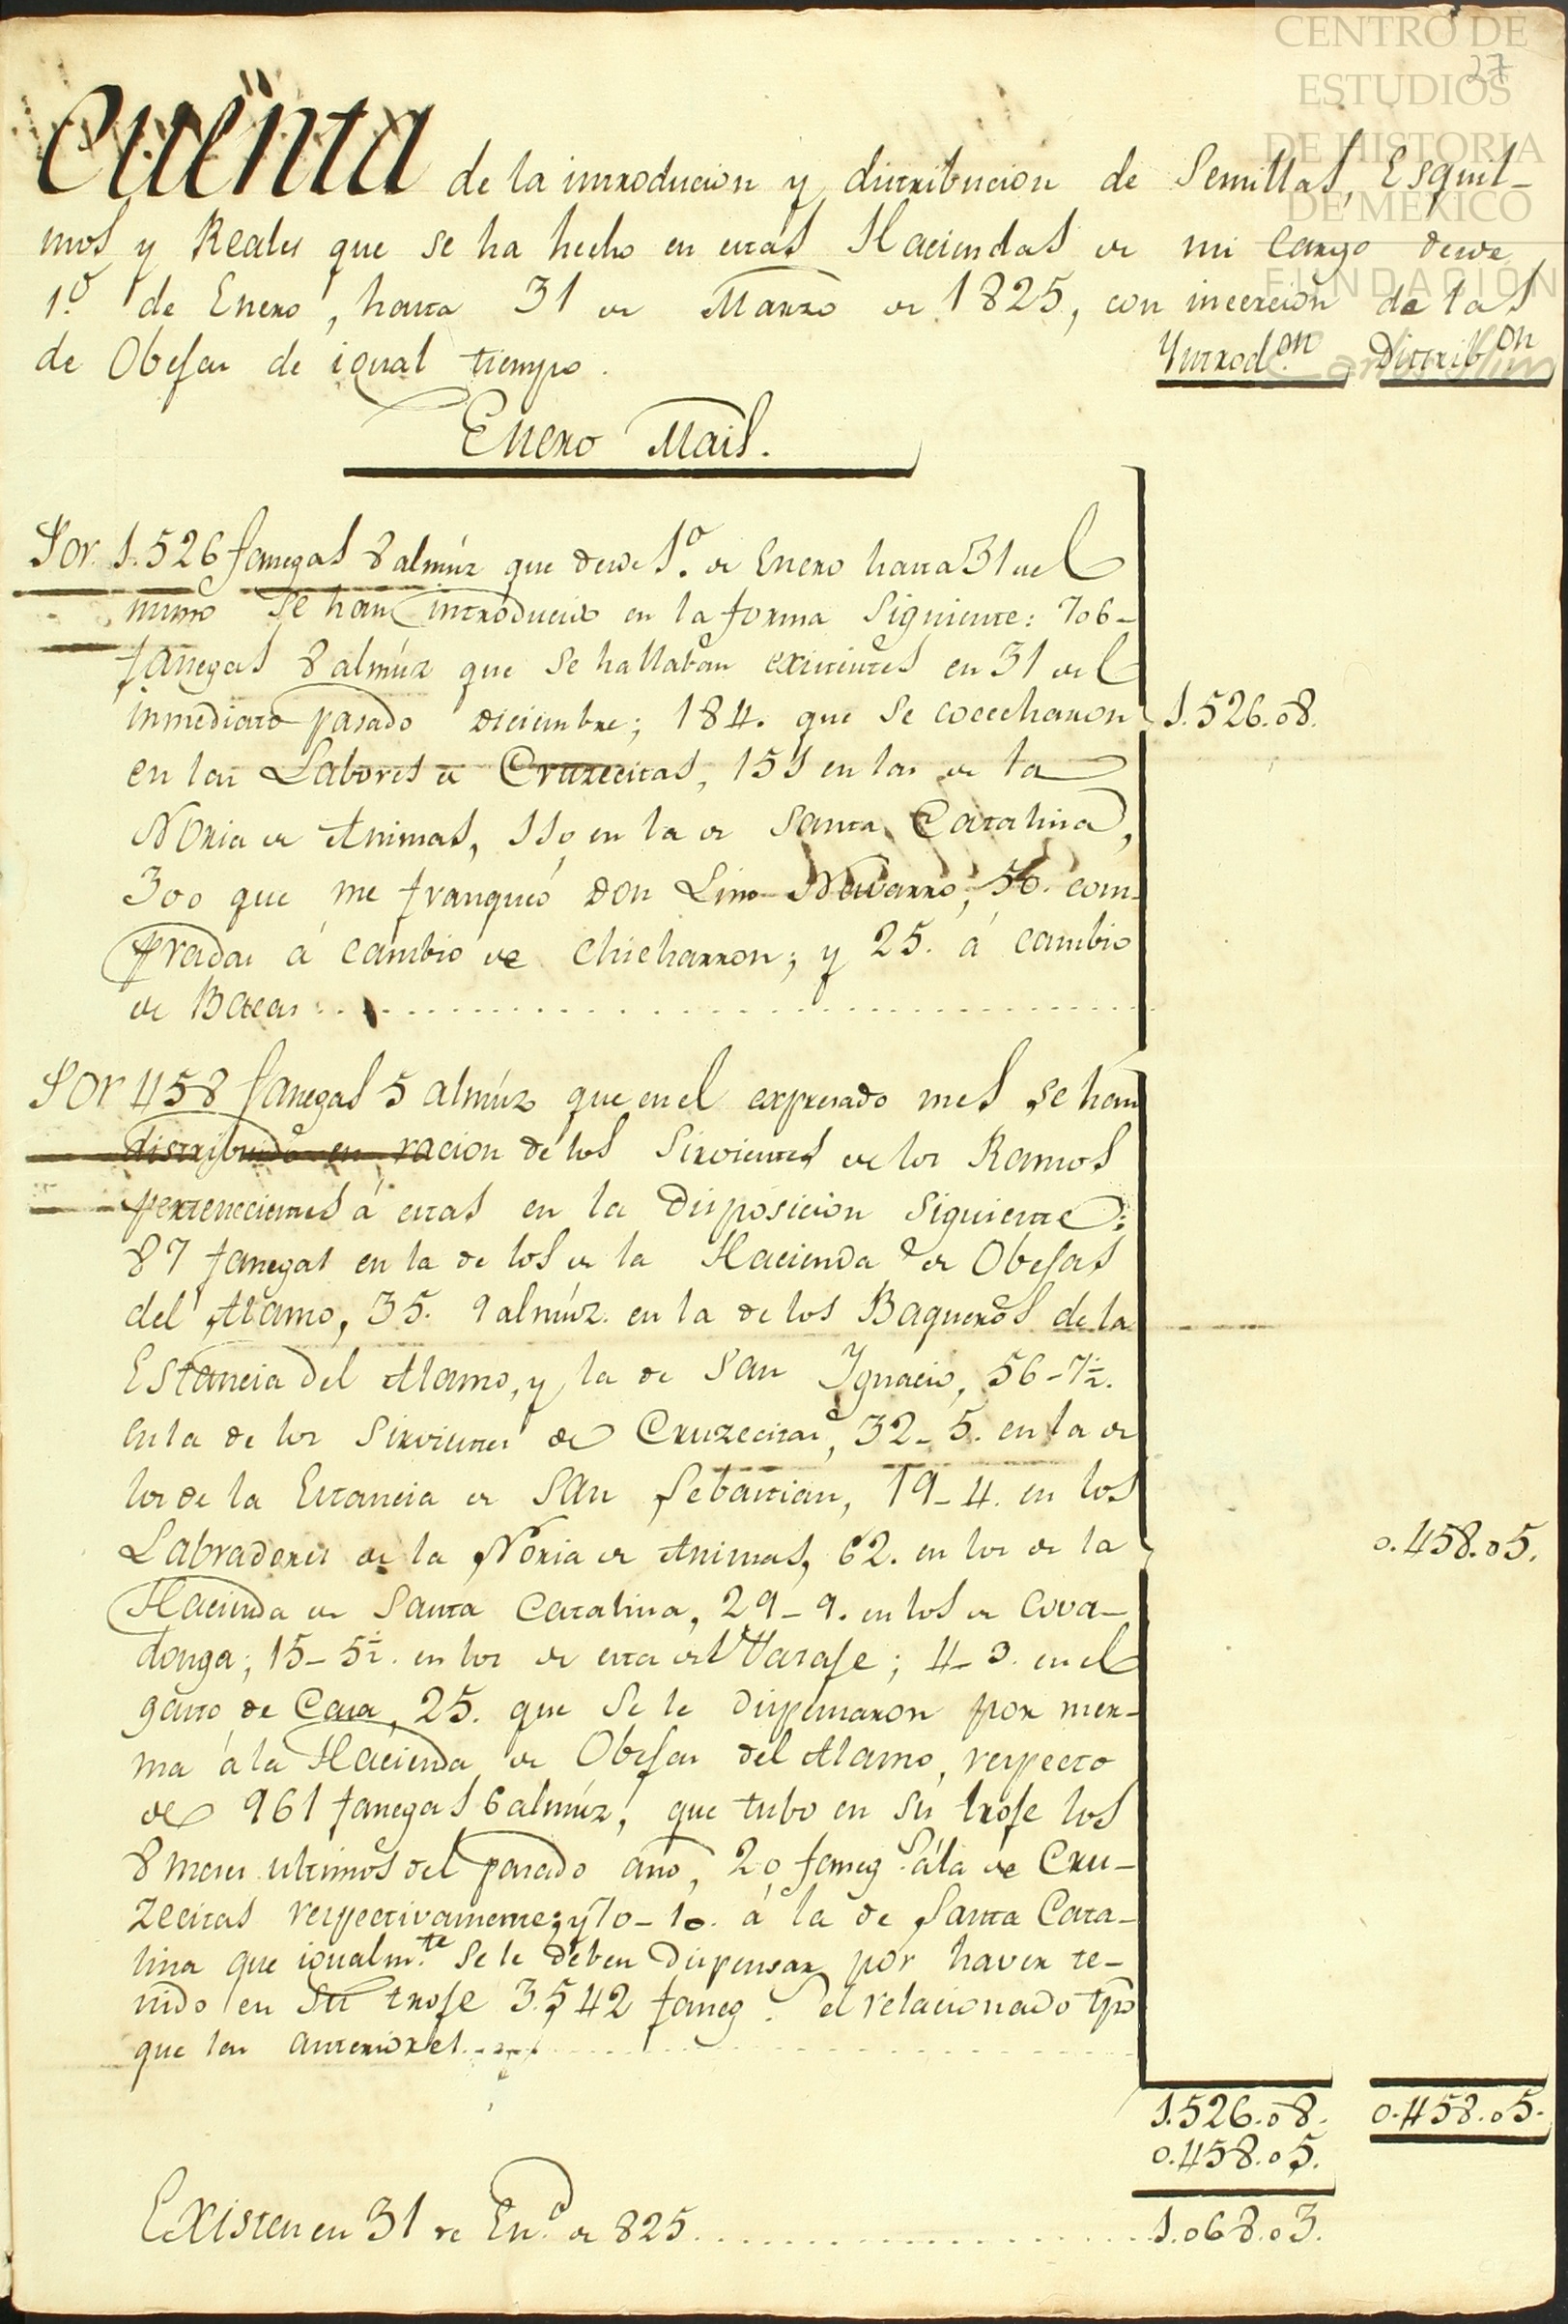 CENTRO DE
ESTUDIOS
DE HISTORIA
DE MÉXICO
FUNDACIÓN
Carlos Slim
27
Cuenta de la introducion y distribucion de Semillas, Esquil-
mos y Reales que se ha hecho en estas Haciendas de mi Cargo desde
1.º de Enero, hasta 31 de Marzo de 1825, con incercion de las
de Obejas de igual tiempo.
Yntrod.on Distrib.on
Enero Mais.
Por 1.526 fanegas 8 almúz que desde 1.º de Enero hasta 31 del
mismo se han introducido en la forma Siguiente: 706-
fanegas 8 almúz que se hallaban existentes en 31 del
inmediato pasado diciembre; 184. que se cocecharon 1.526.08.
en las Labores de Cruzecitas, 151 en las de la
Noria de Animas, 110 en la de Santa Catalina,
300 que me franqueó don Lino Navarro, 50. com-
pradas á cambio de Chicharron; y 25. á cambio
de Bacas
Por 458 fanegas 5 almúz que en el expresado mes se han
distribuido en racion de los Sirvientes de los Ramos
pertenecientes á estas en la Disposicion Siguiente:
87 fanegas en la de los de la Hacienda de Obejas
del Alamo, 35. 9 almúz. en la de los Baqueros de la
Estancia del Alamo, y la de San Ygnacio, 56-7½.
en la de los Sirvientes de Cruzecitas, 32-5. en la de
los de la Estancia de San Sebastian, 19-4. en los
Labradores de la Noria de Animas, 62. en los de la 0.458.05.
Hacienda de Santa Catalina, 29-9. en los de Cova-
donga; 15-5½. en los de esta del Tarafe; 4-3. en el
gasto de Casa, 25. que se le dispensaron por mer-
ma á la Hacienda de Obejas del Alamo, respecto
de 961 fanegas 6 almúz, que tubo en su troje los
8 meses ultimos del pasado año, 20 faneg.s á la de Cru-
zecitas respectivamente; y 70-10. á la de Santa Cata-
lina que igualm.te se le deben Dispensar por haver te-
nido en su troje 3.542 faneg.s el relacionado tpo
que las anteriores
1.526.08. 0.458.05.
0.458.05.
Existen en 31 de En.o de 825 1.068.03.